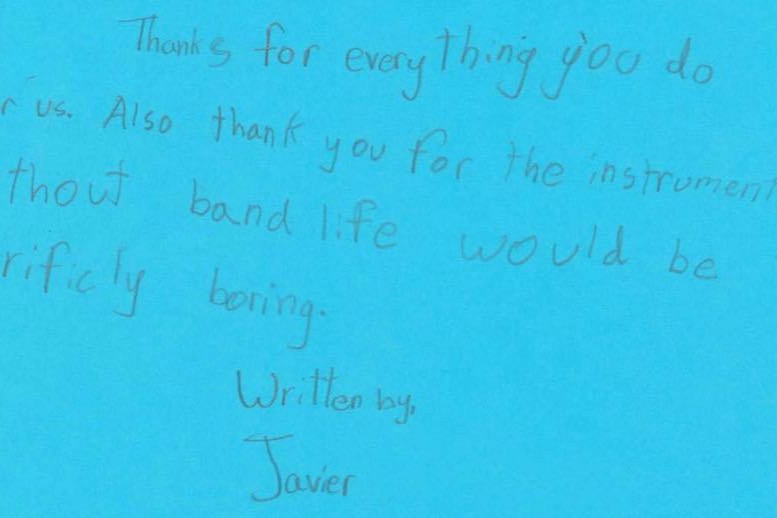 Thanks for everything you do
r us. Also thank you for the instrument
thout band life would be
rificly boring.
Written by,
Javier